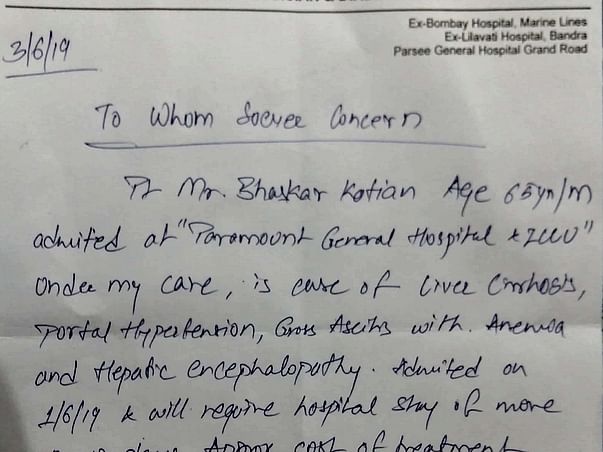 Ex-Bombay Hospital, Marine Lines
Ex-Lilavati Hospital, Bandra
Parsee General Hospital Grand Road
3/6/19
To Whom Soever Concern
Pt Mr. Bhaskar Kotian Age 65yr/m
admited at "Paramount General Hospital & ICCU"
under my care, is case of Liver Cirrhosis,
Portal Hypertension, Gross Ascitis with. Anemia
and Hepatic encephalopathy. Admited on
1/6/19 & will require hospital stay of more
days Approx cost of treatment